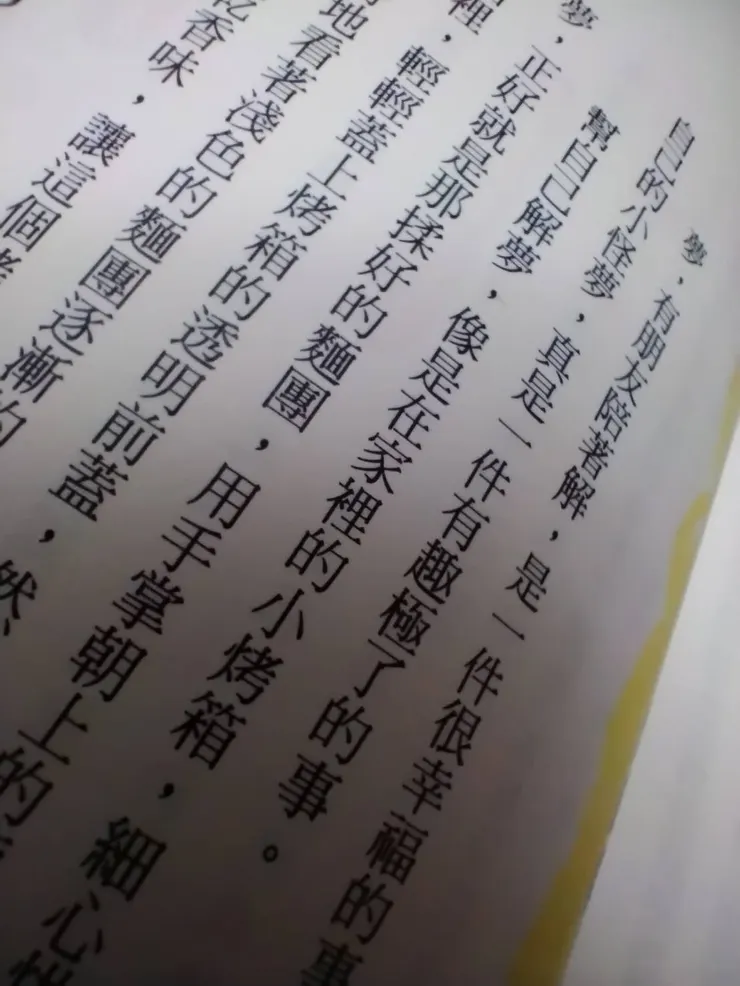 夢，有朋友陪著解，是一件很幸福的事
自己的小怪夢，真是一件有趣極了的事。
幫自己解夢，像是在家裡的小烤箱，細心
夢，正好就是那揉好的麵團，用手掌朝上的
裡，輕輕蓋上烤箱的透明前蓋，然
地看著淺色的麵團逐漸的
香味，讓這個